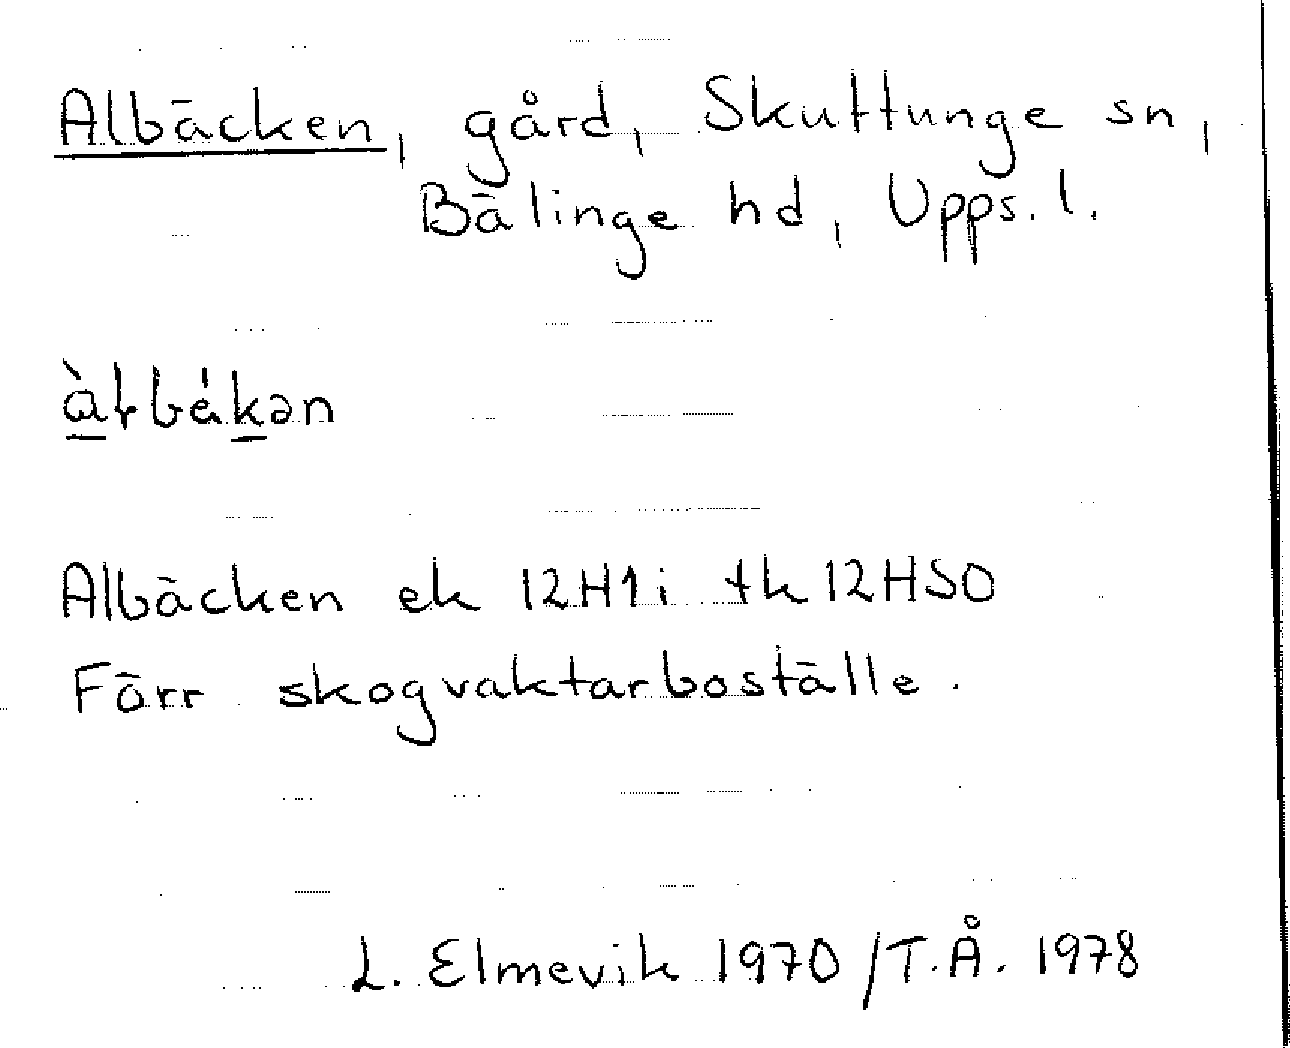 Albäcken, gård, Skuttunge sn,
Bälinge hd, Upps. l.
Albäcken ek 12H1i tk 12HSO
Förr skogvaktarboställe.
L. Elmevik 1970 / T.Å. 1978